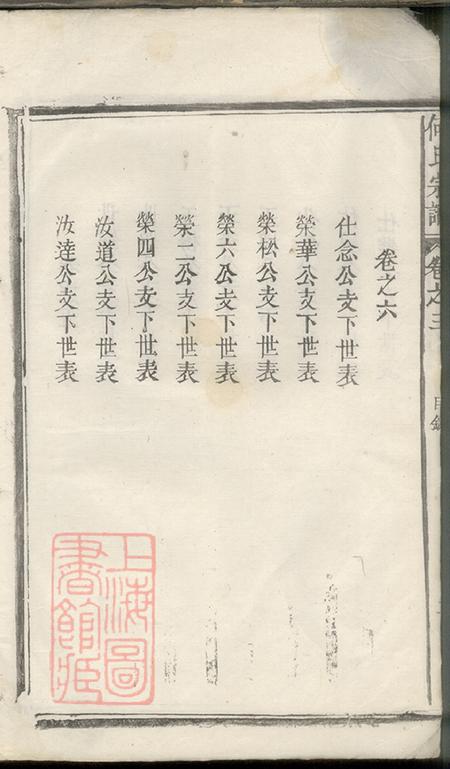 何氏宗譜 卷之三 目錄
卷之六
仕念公支下世表
榮華公支下世表
榮松公支下世表
榮六公支下世表
榮二公支下世表
榮四公支下世表
汝道公支下世表
汝達公支下世表
上海圖
書館藏